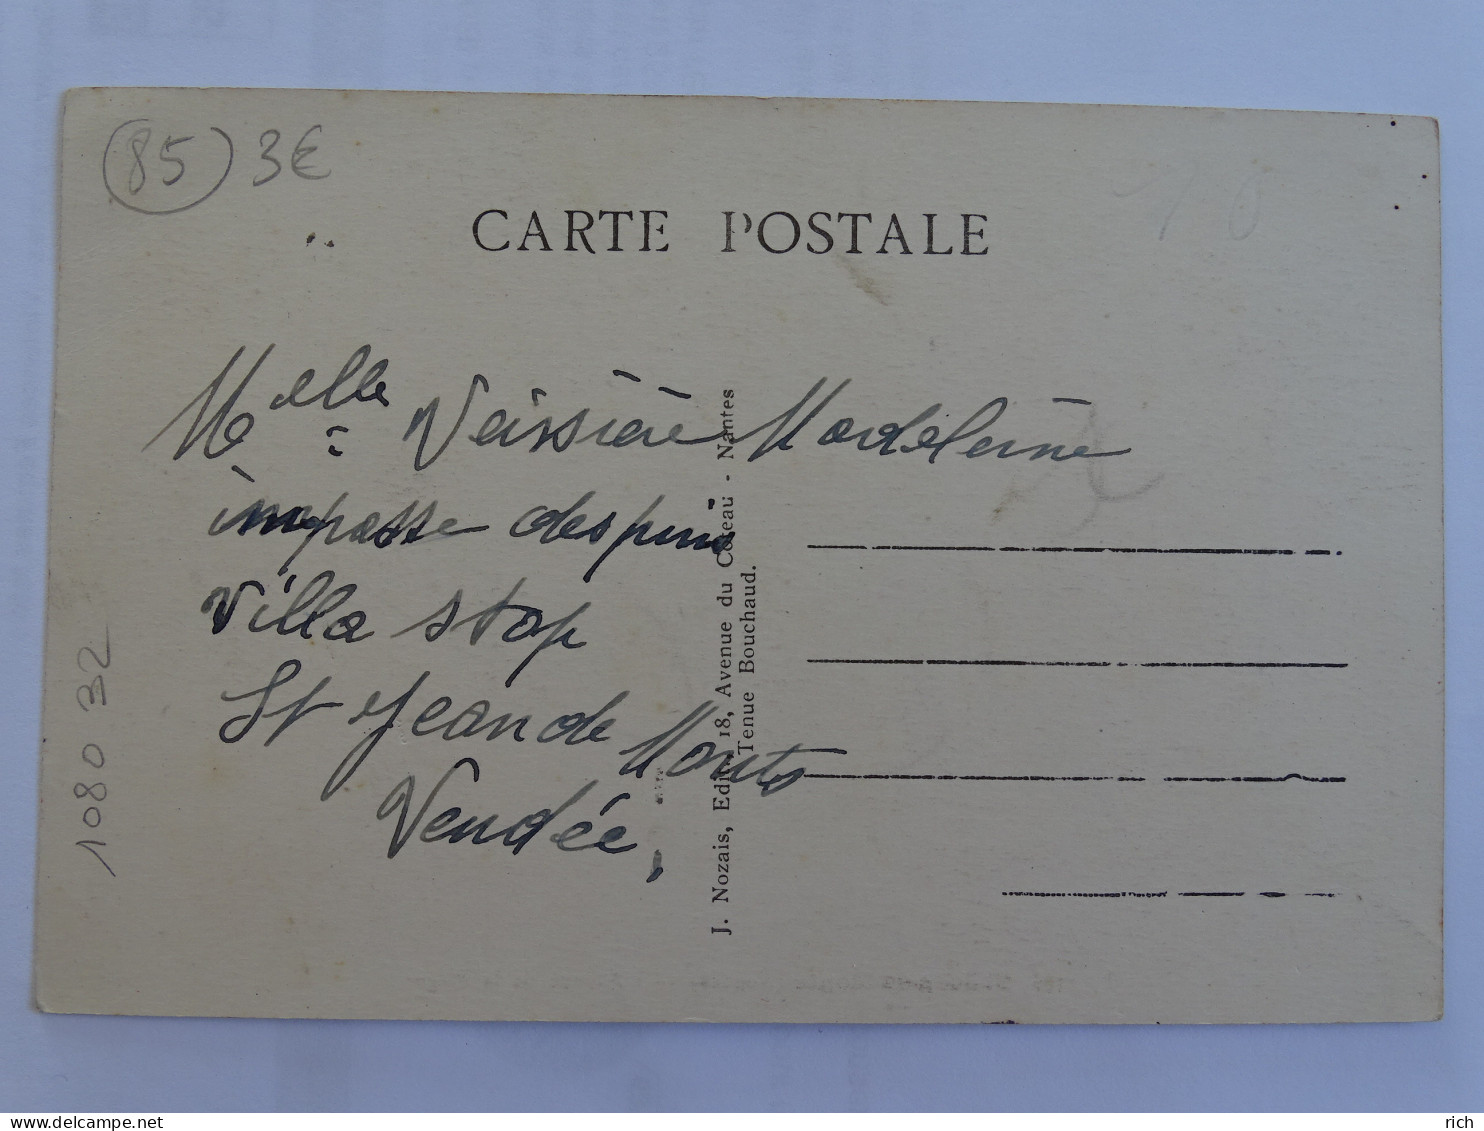 (85) 3€
CARTE POSTALE
Melle Veissière Madeleine
impasse des pins
Villa stop
St Jean de Monts
Vendée.
J. Nozais, Edit., 18, Avenue du Coteau - Nantes
Tenue Bouchaud.
1080 32
www.delcampe.net
rich